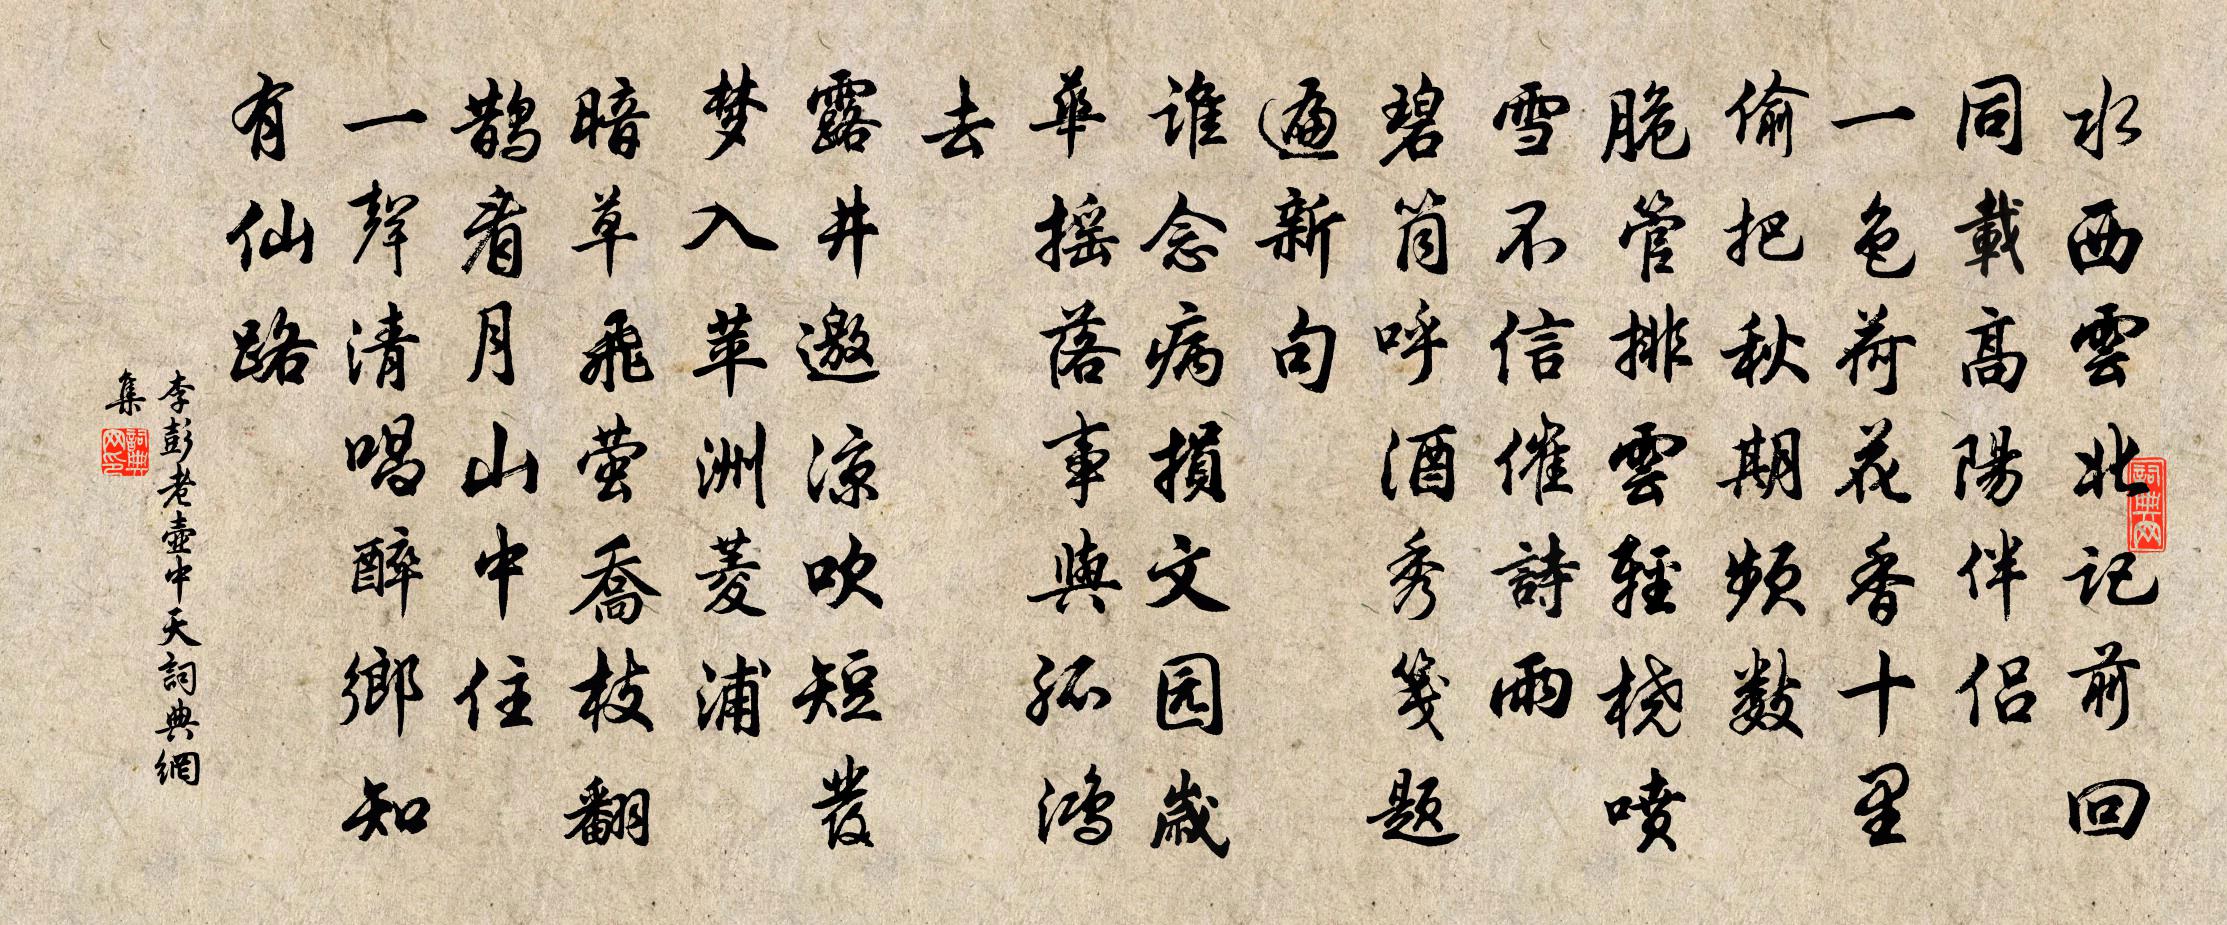 水西雲北記前回
同載高陽伴侣
一色荷花香十里
偷把秋期頻数
脆管排雲輕桡噴
雪不信催詩雨
碧筒呼酒秀箋题
遍新句
谁念病損文园歲
華摇落事與孤鴻
去
露井邀凉吹短髮
梦入苹洲菱浦
暗草飛萤喬枝翻
鹊看月山中住
一聲清唱醉鄉知
有仙路
李彭老壺中天詞典網
集
詞典网
詞典网印